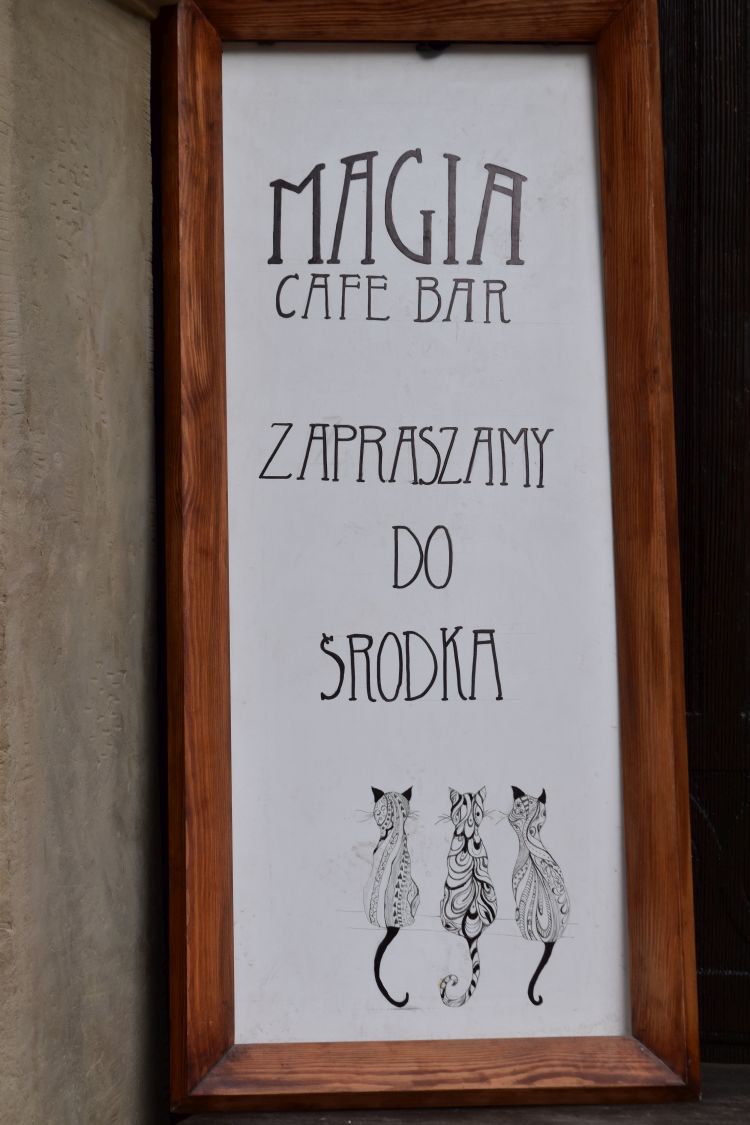 MAGIA
CAFE BAR
ZAPRASZAMY
DO
ŚRODKA